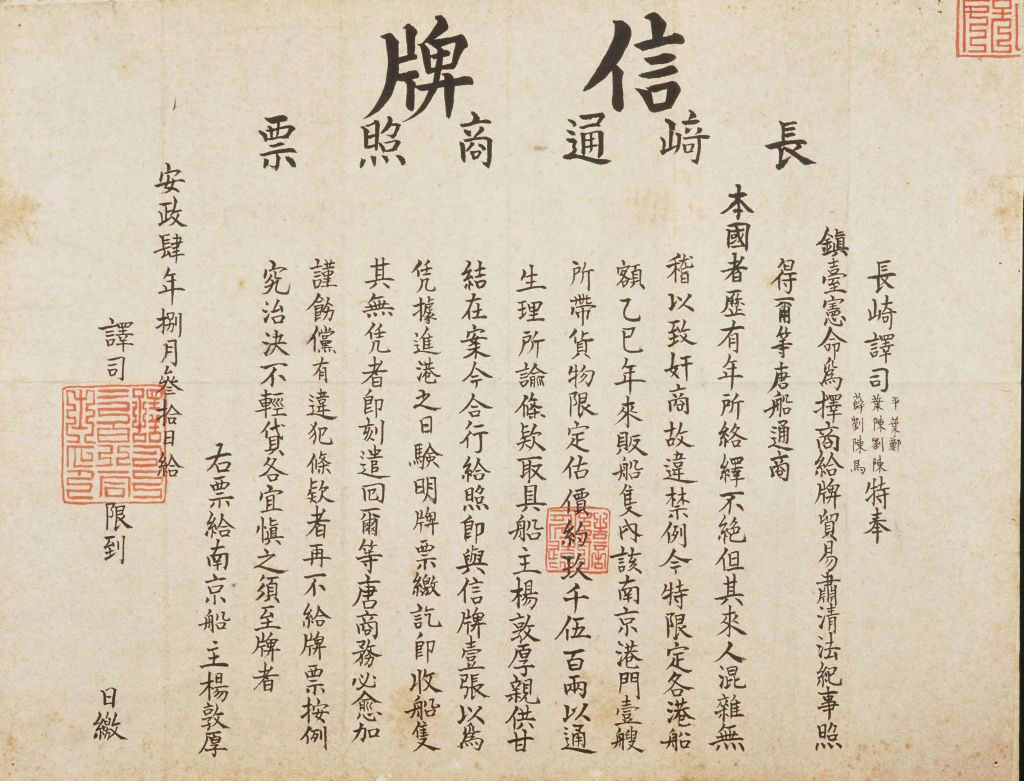 信牌
長﨑通商照票
長崎譯司 平葉鄭 葉陳劉陳 薛劉陳馬 特奉
鎮臺憲命為擇商給牌貿易肅清法紀事照
得爾等唐船通商
本國者歷有年所絡繹不絕但其來人混雜無
稽以致奸商故違禁例今特限定各港船
額乙巳年來販船隻內該南京港門壹艘
所帶貨物限定估價約玖千伍百兩以通
生理所諭條欵取具船主楊敦厚親供甘
結在案今合行給照卽與信牌壹張以為
凭據進港之日験明牌票繳訖卽收船隻
其無凭者卽刻遣囘爾等唐商務必愈加
謹飭儻有違犯條欵者再不給牌票按例
究治決不輕貸各宜慎之須至牌者
右票給南京船主楊敦厚
安政肆年捌月叄拾日給
譯司
限到 日繳